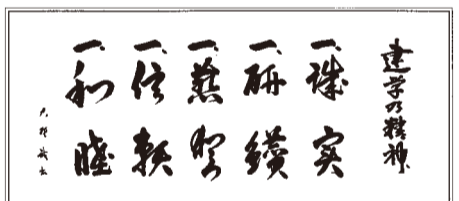 建学乃精神
一、誠実
一、研鑽
一、慈愛
一、信頼
一、和睦